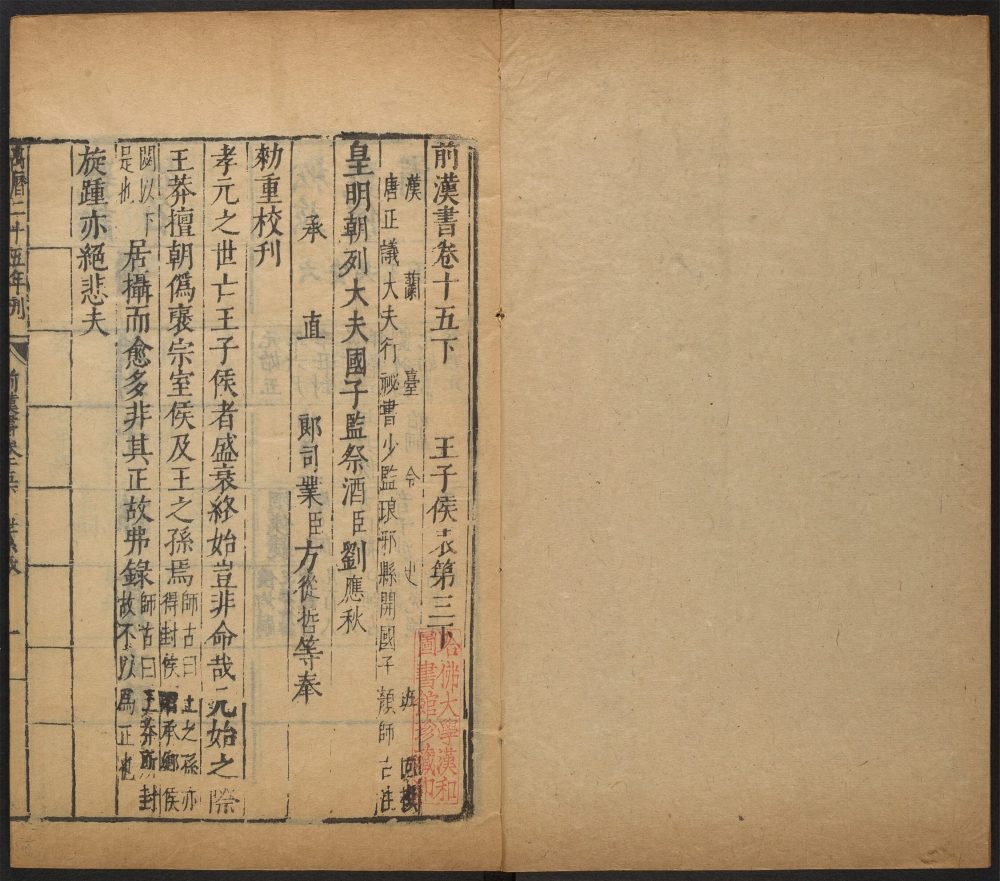 前漢書卷十五下 王子侯表第三下
漢蘭臺令史班固撰
唐正議大夫行祕書少監琅邪縣開國子顏師古注
皇明朝列大夫國子監祭酒臣劉應秋
承直郞司業臣方從哲等奉
勑重校刊
孝元之世亡王子侯者盛衰終始豈非命哉元始之際
王莽擅朝僞襃宗室侯及王之孫焉師古曰王之孫亦得封侯謂承鄉侯
閎以下是也居攝而愈多非其正故弗錄師古曰王莽所封故不以爲正也
旋踵亦絕悲夫
萬曆二十五年刋 前漢書卷十五下 一
哈佛大學漢和圖書館珍藏印